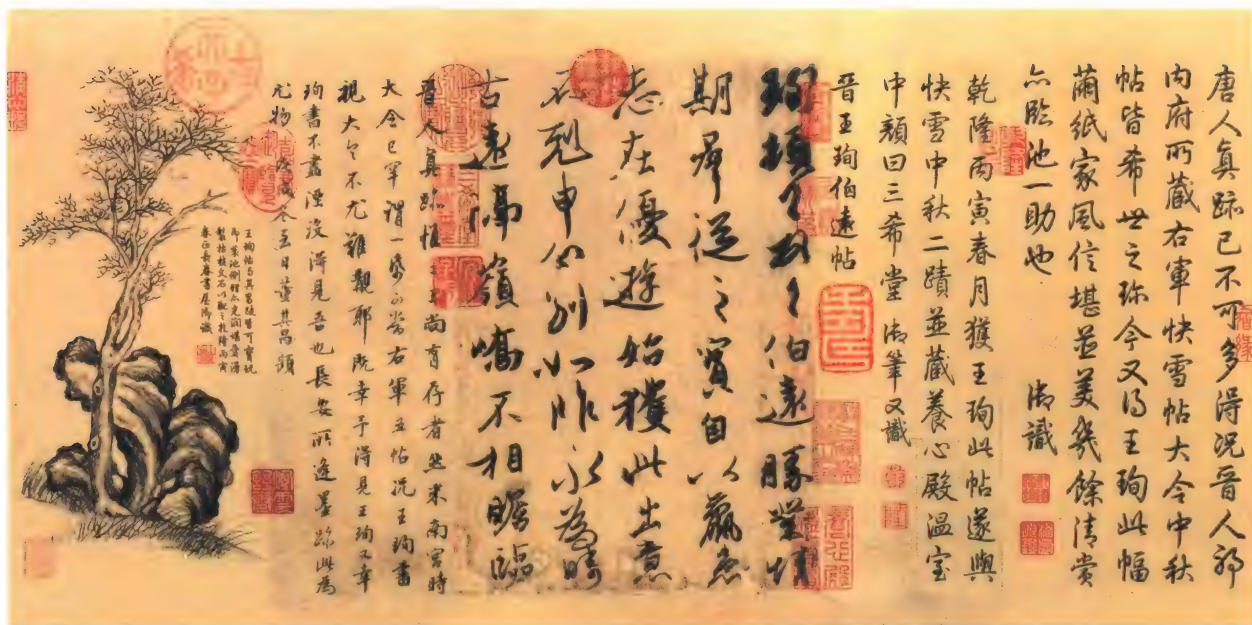 唐人真跡已不可多得況晉人耶
內府所藏右軍快雪帖大令中秋
帖皆希世之珍今又得王珣此幅
繭紙家風信堪並美幾餘清賞
亦臨池一助也 御識
乾隆丙寅春月獲王珣此帖遂與
快雪中秋二蹟並藏養心殿溫室
中顏曰三希堂 御筆又識
晉王珣伯遠帖
珣頓首頓首伯遠勝業情
期羣從之寶自以羸患
志在優遊始獲此出意
不剋申分別如昨永為疇
古遠隔嶺嶠不相瞻臨
晉人真跡惟二王尚有存者然米南宮時
大令已罕謂一紙可當右軍五帖況王珣書
視大令不尤難覯耶既幸予得見王珣又幸
珣書不盡湮沒得見吾也長安所逢墨跡此為
尤物 戊戌冬至日董其昌題
王珣帖與其昌跋皆可寶玩
即裝池側理亦光潤堪愛漫
製枯枝文石以配之乾隆丙寅
春正長春書屋御識